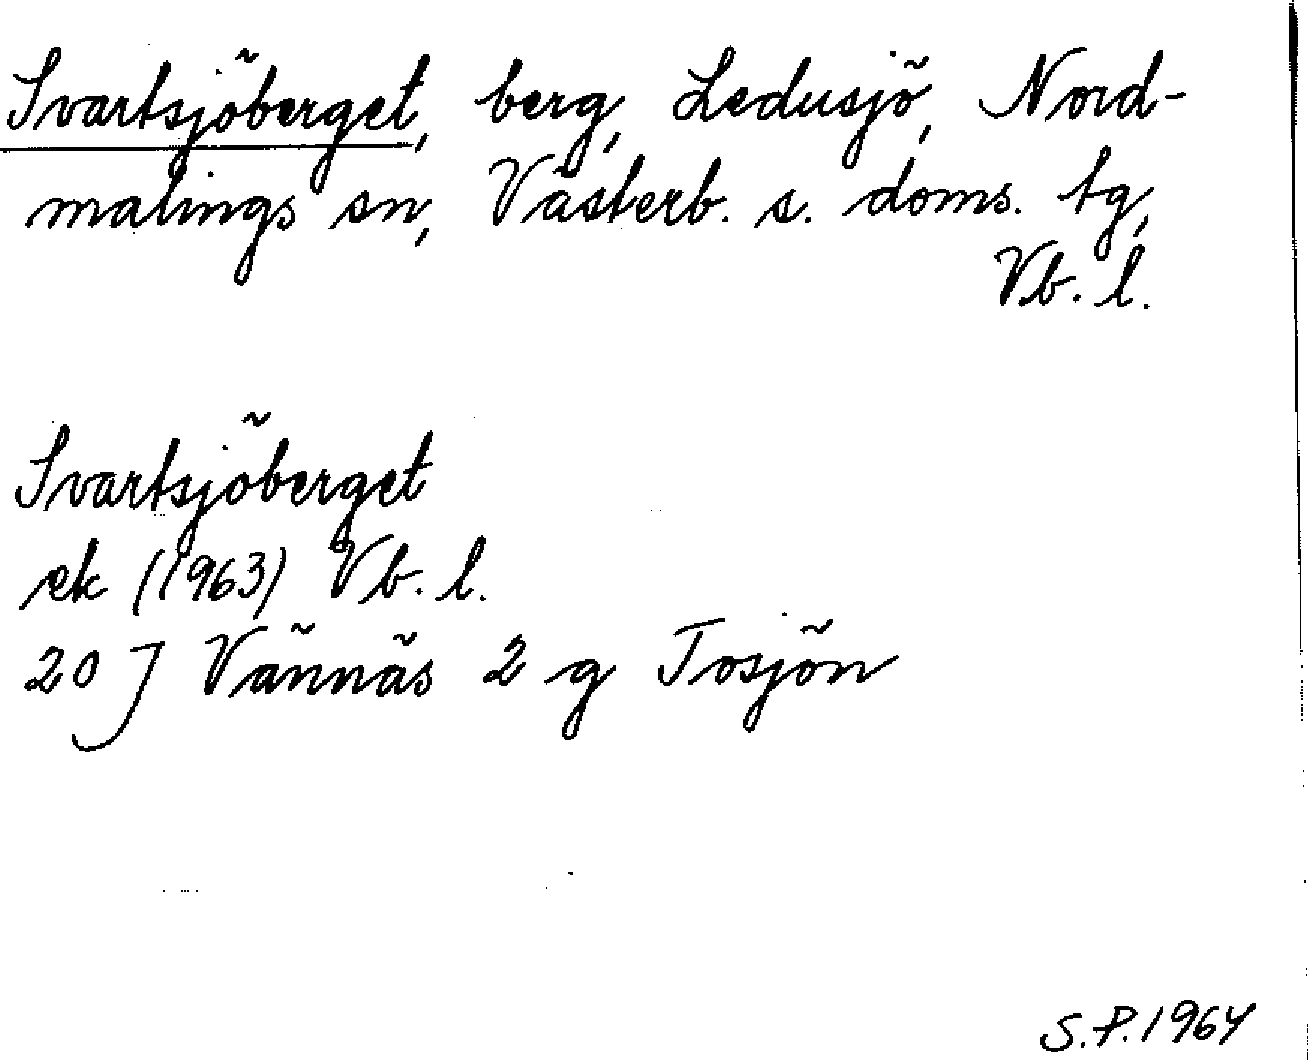 Svartsjöberget, berg, Ledusjö, Nord-
malings sn, Västerb. s. doms. tg,
Vb. l.
Svartsjöberget
ek (1963) Vb. l.
20 J Vännäs 2 g Tosjön
S.P. 1964